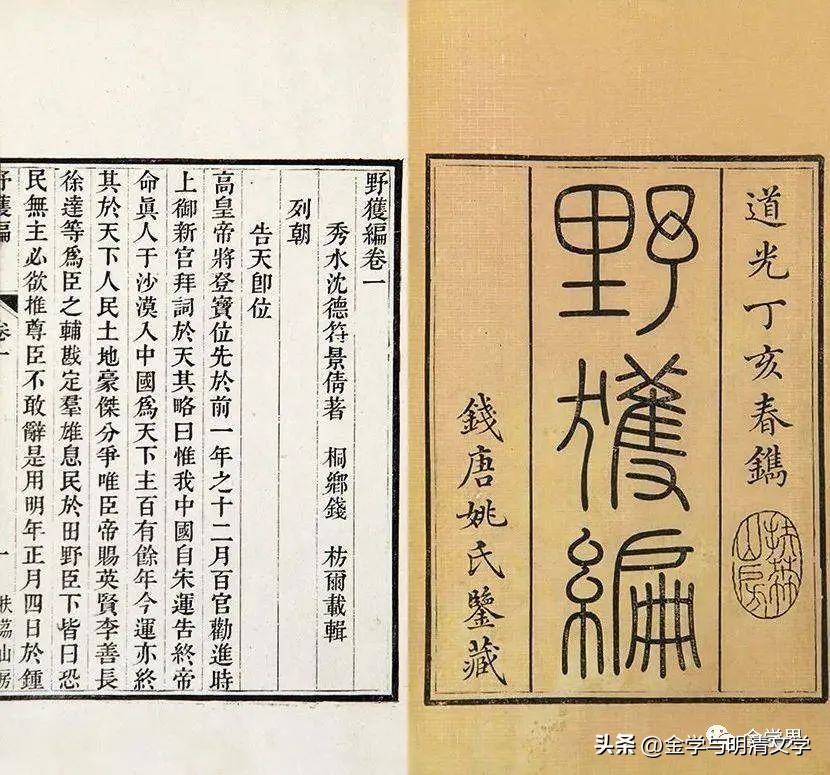 道光丁亥春鐫
野獲編
錢唐姚氏鑒藏
扶荔山房
野獲編卷一
秀水沈德符景倩著 桐鄉錢 枋爾載輯
列朝
告天卽位
高皇帝將登寶位先於前一年之十二月百官勸進時
上御新宮拜詞於天其略曰惟我中國自宋運告終帝
命眞人于沙漠入中國爲天下主百有餘年今運亦終
其於天下人民土地豪傑分爭唯臣帝賜英賢李善長
徐達等爲臣之輔戡定羣雄息民於田野臣下皆曰恐
民無主必欲推尊臣不敢辭是用明年正月四日於鍾
野獲編 卷一 一 扶荔山房
头条 @金学与明清文学